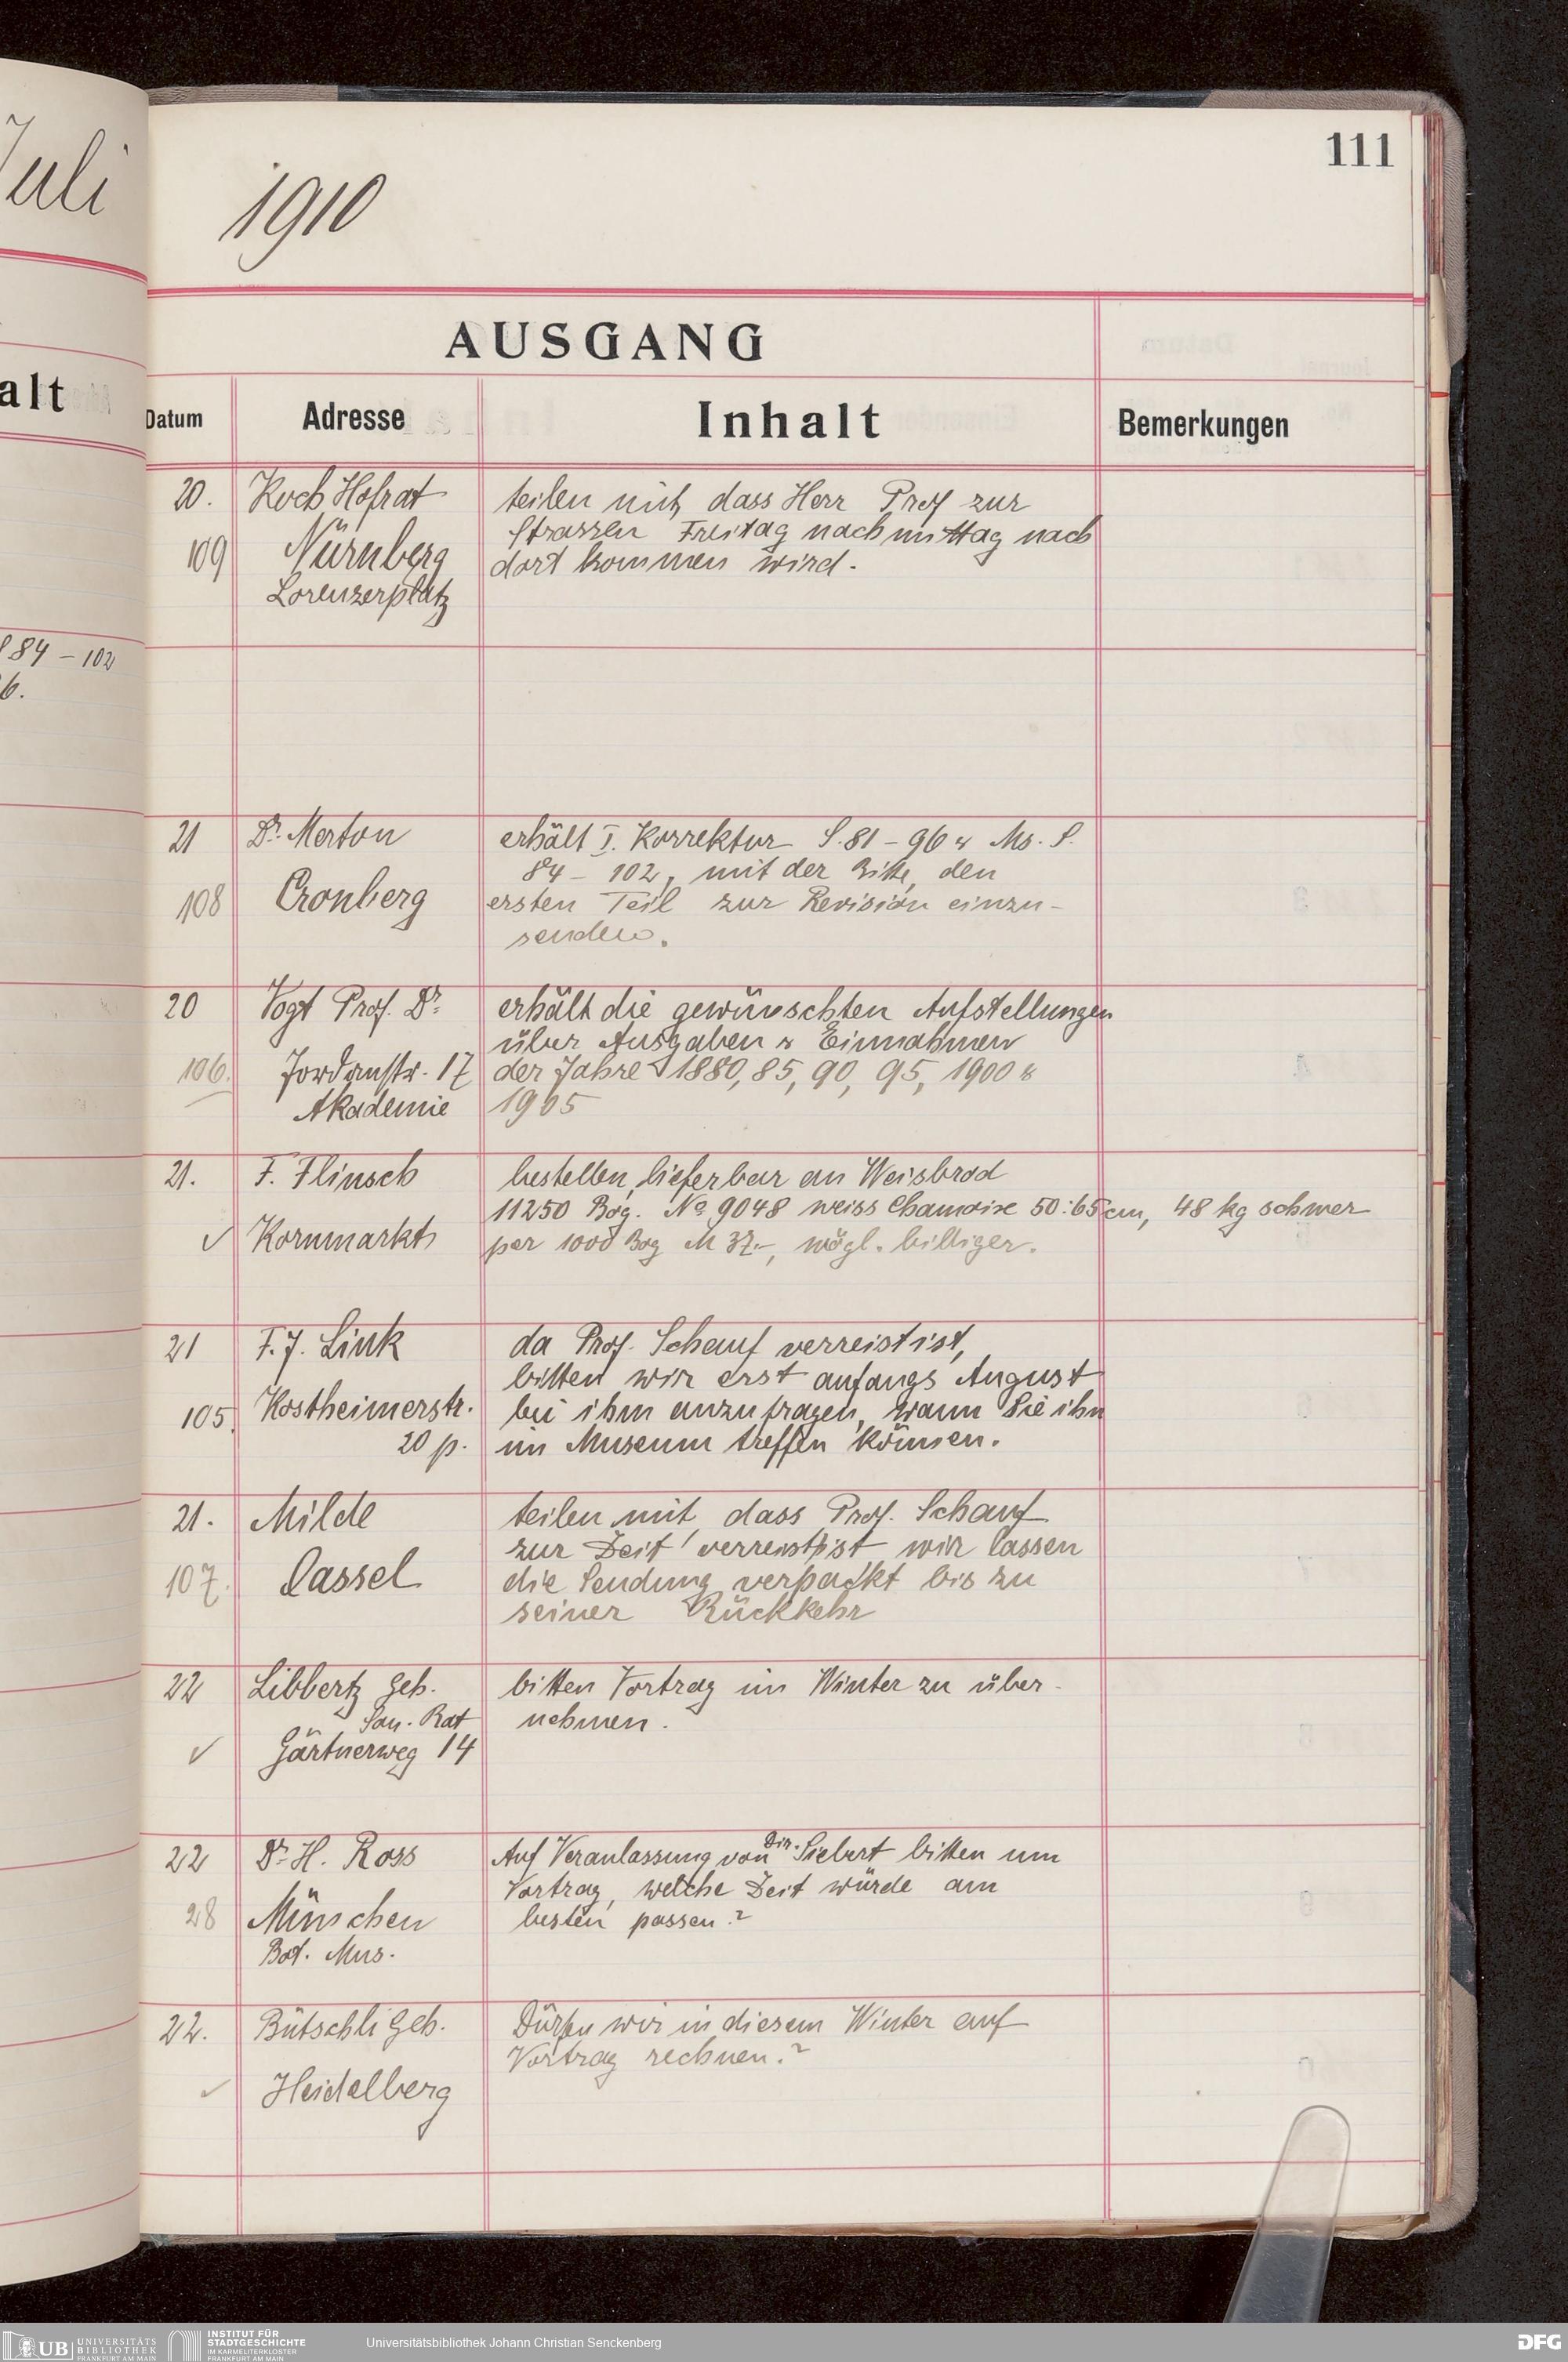 Juli
alt
884 – 102
6.
111
1910
AUSGANG
Datum Adresse Inhalt Bemerkungen
20. Koch Hofrat teilen mit, dass Herr Prof zur
Strassen Freitag nachmittag nach
109 Nürnberg dort kommen wird.
Lorenzerplatz
21 Dr. Merton erhält I. Korrektur S. 81 – 96 u Ms. S.
84 – 102, mit der Bitte, den
108 Cronberg ersten Teil zur Revision einzu-
senden.
20 Vogt Prof. Dr. erhält die gewünschten Aufstellungen
über Ausgaben u Einnahmen
106. Jordanstr. 17 der Jahre 1880, 85, 90, 95, 1900 u
Akademie 1905
21. F. Flinsch bestellen, lieferbar an Weisbrod
11250 Bog. No 9048 weiss Chamoise 50:65 cm, 48 kg schwer
✓ Kornmarkt per 1000 Bog M 37.–, mögl. billiger.
21 F. J. Link da Prof. Schauf verreist ist,
bitten wir erst anfangs August
105. Kostheimerstr. bei ihm anzufragen, wann Sie ihn
20 p. im Museum treffen können.
21. Milde teilen mit dass Prof. Schauf
zur Zeit verreist ist wir lassen
107. Cassel die Sendung verpackt bis zu
seiner Rückkehr
22 Libbertz Geh. bitten Vortrag im Winter zu über-
San. Rat nehmen.
✓ Gärtnerweg 14
22 Dr. H. Ross Auf Veranlassung von Dir. Siebert bitten um
Vortrag, welche Zeit würde am
28 München besten passen?
Bot. Mus.
22. Bütschli Geh. Dürfen wir in diesem Winter auf
Vortrag rechnen.?
✓ Heidelberg
UB UNIVERSITÄTS
BIBLIOTHEK
FRANKFURT AM MAIN
INSTITUT FÜR
STADTGESCHICHTE
IM KARMELITERKLOSTER
FRANKFURT AM MAIN
Universitätsbibliothek Johann Christian Senckenberg
DFG